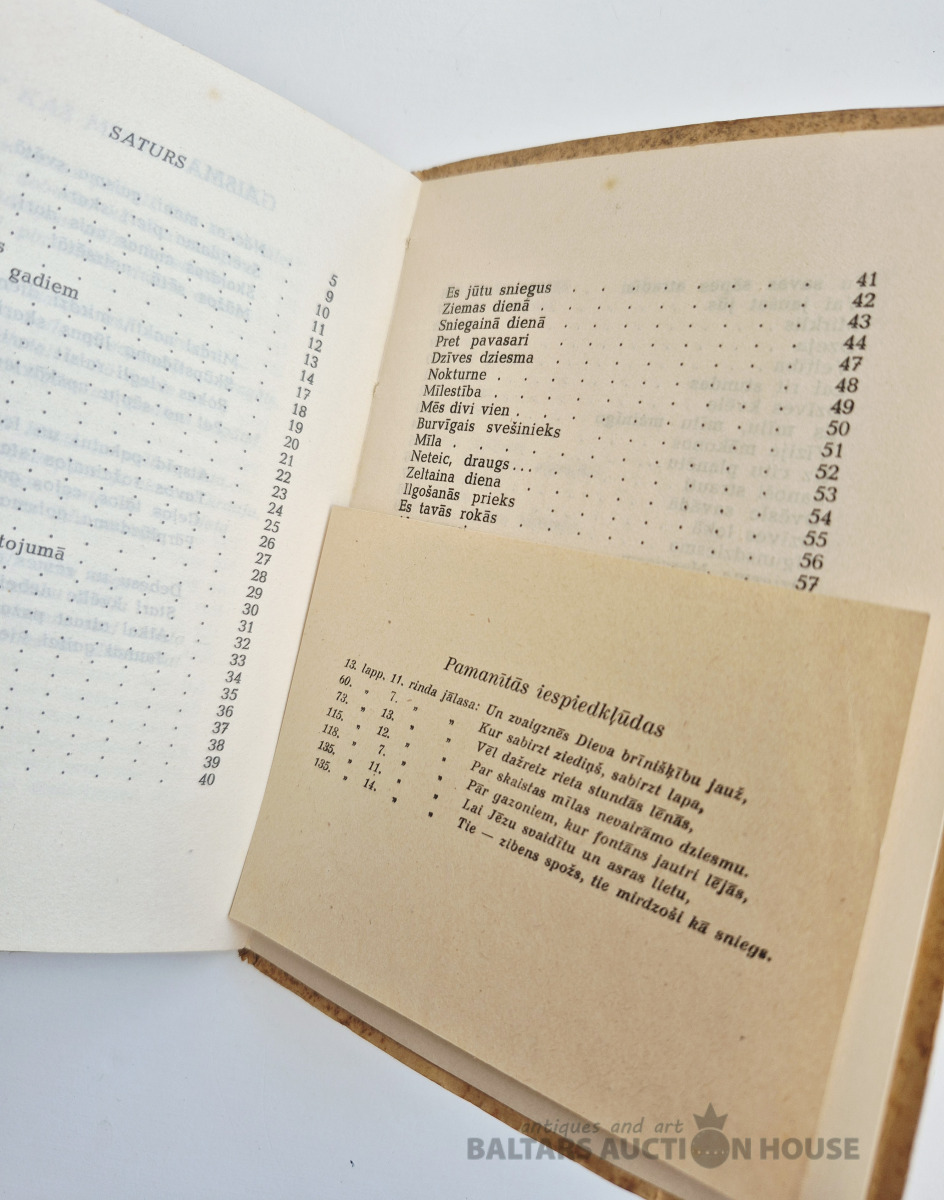 SATURS
gadiem
tojumā
5
9
10
11
12
13
14
17
18
19
20
21
22
23
24
25
26
27
28
29
30
31
32
33
34
35
36
37
38
39
40
Es jūtu sniegus . . . 41
Ziemas dienā . . . 42
Sniegainā dienā . . . 43
Pret pavasari . . . 44
Dzīves dziesma . . . 47
Nokturne . . . 48
Mīlestība . . . 49
Mēs divi vien . . . 50
Burvīgais svešinieks . . . 51
Mīla . . . 52
Neteic, draugs... . . . 53
Zeltaina diena . . . 54
Ilgošanās prieks . . . 55
Es tavās rokās . . . 56
57
Pamanītās iespiedkļūdas
13. lapp. 11. rinda jālasa: Un zvaigznēs Dieva brīnišķību jauž,
60. " 7. " " Kur sabirzt ziediņš, sabirzt lapa,
73. " 13. " " Vēl dažreiz rieta stundās lēnās,
115. " 12. " " Par skaistas mīlas nevairāmo dziesmu.
118. " 7. " " Pār gazoniem, kur fontāns jautri lējās,
135. " 11. " " Lai Jēzu svaidītu un asras lietu,
135. " 14. " " Tie — zibens spožs, tie mirdzoši kā sniegs.
antiques and art
BALTARS AUCTION HOUSE